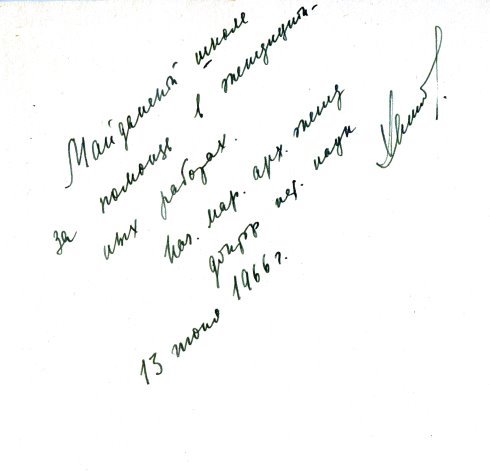 Майданской школе
за помощь в экспедицион-
ных работах.
Нач. мар. арх. эксп
доктор ист. наук
13 июня 1966 г.